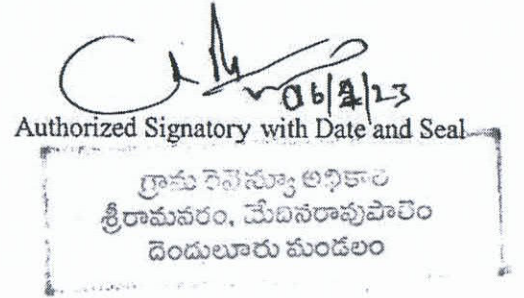 06/4/23
Authorized Signatory with Date and Seal
గ్రామ రెవెన్యూ అధికారి
శ్రీరామవరం, మేదినరావుపాలెం
దెందులూరు మండలం